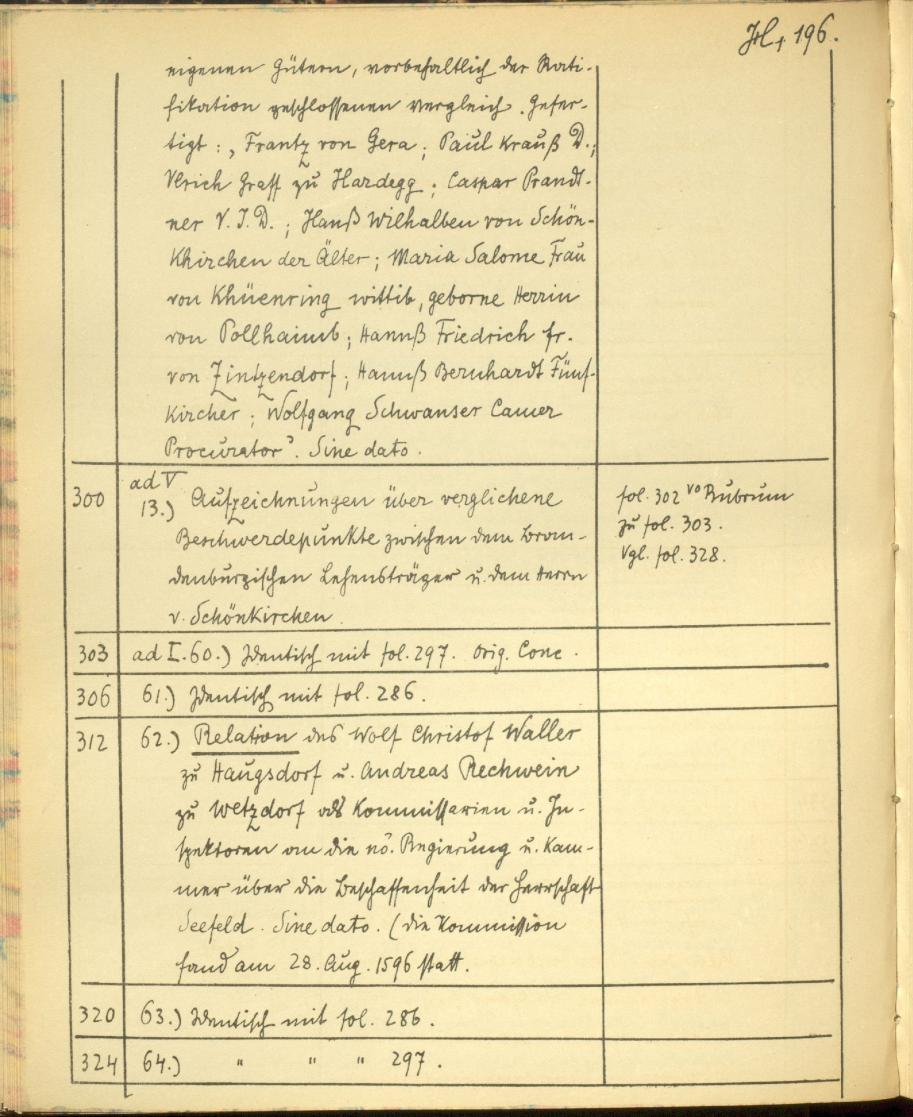 196.
eigenen Gütern, vorbehaltlich der Rati-
fikation geschlossenen Vergleich. Gefer-
tigt: „Frantz von Gera; Paul Krauß D.;
Ulrich Graff zu Hardegg; Caspar Prandt-
ner V. J. D.; Hanß Wilhalben von Schön-
Khirchen der Älter; Maria Salome Frau
von Khüenring wittib, geborne Herrin
von Pollhaimb; Hannß Friedrich fr.
von Zintzendorf; Hannß Bernhardt Fünf-
Kircher; Wolfgang Schwanser Camer
Procurator". Sine dato.
300 ad V
13.) Aufzeichnungen über verglichene
Beschwerdepunkte zwischen dem bran-
denburgischen Lehensträger u. dem Herrn
v. Schönkirchen.
fol. 302 vo Rubrum
zu fol. 303.
Vgl. fol. 328.
303 ad I. 60.) Identisch mit fol. 297. Orig. Conc.
306 61.) Identisch mit fol. 286.
312 62.) Relation des Wolf Christof Waller
zu Haugsdorf u. Andreas Rechwein
zu Wetzdorf als Kommissarien u. In-
spektoren an die nö. Regierung u. Kam-
mer über die Beschaffenheit der Herrschaft
Seefeld. Sine dato. (die Kommission
fand am 28. Aug. 1596 statt.
320 63.) Identisch mit fol. 286.
324 64.) " " " 297.